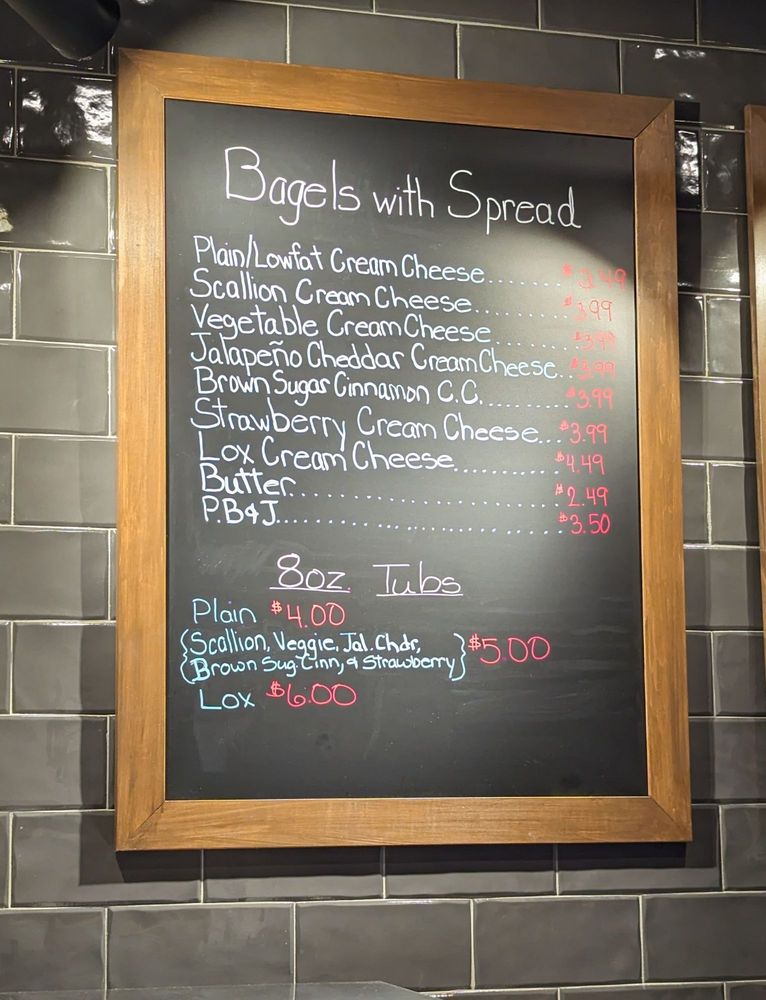 Bagels with Spread
Plain/Lowfat Cream Cheese....... $3.49
Scallion Cream Cheese......... $3.99
Vegetable Cream Cheese........ $3.99
Jalapeño Cheddar Cream Cheese.. $3.99
Brown Sugar Cinnamon C.C.......... $3.99
Strawberry Cream Cheese... $3.99
Lox Cream Cheese.......... $4.49
Butter.......................... $2.49
P.B&J............................ $3.50
8oz Tubs
Plain $4.00
{Scallion, Veggie, Jal. Chdr,
Brown Sug. Cinn, & Strawberry} $5.00
Lox $6.00